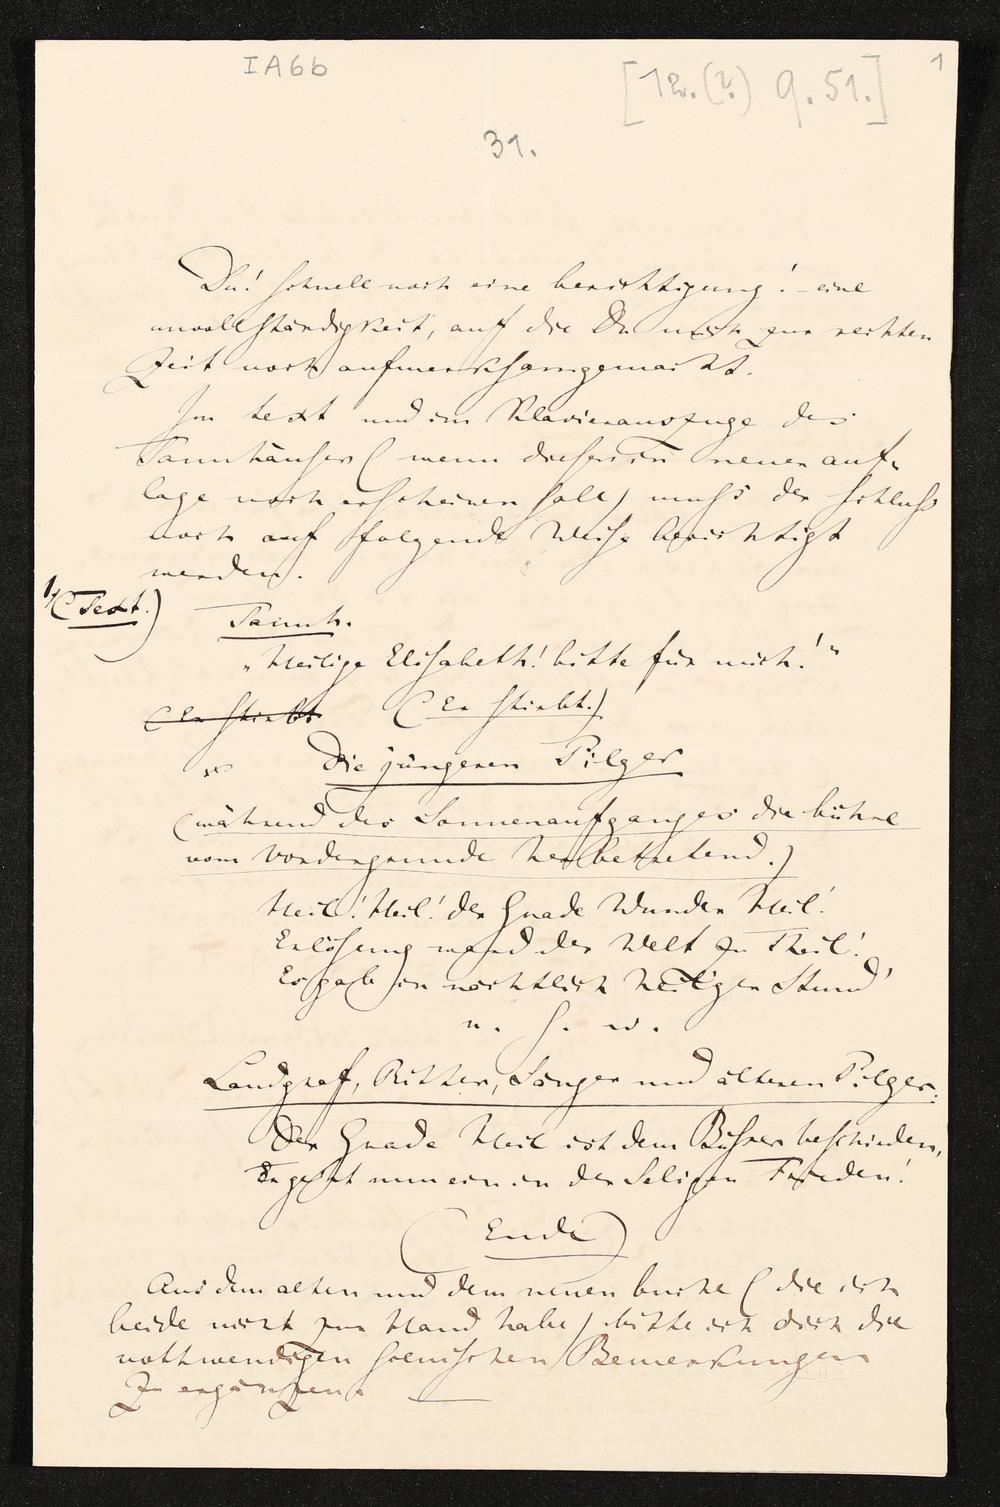 IA6b
[12.(?) 9. 51.]
1
31.
Du! schnell noch eine berichtigung! – eine
unvollständigkeit, auf die Du mich zur rechten
Zeit noch aufmerksamgemacht.
Im text und im Klavierauszuge des
Tannhäusers (wenn dieser in neuer auf-
lage noch erscheinen soll) muss der schluss
noch auf folgende Weise berichtigt
werden.
1, (Text.)
Tannh.
"Heilige Elisabeth! bitte für mich!"
(Er stirbt (Er stirbt.)
Die jüngeren Pilger
(während des Sonnenaufganges die bühne
vom Vordergrunde her betretend.)
Heil! Heil! der Gnade Wunder Heil!
Erlösung ward der Welt zu Theil!
Es gab in nächtlich heil'ger Stund'
u. s. w.
Landgraf, Ritter, Sänger und älteren Pilger.
Der Gnade Heil ist dem Büsser beschieden,
Er geht nun ein in der Seligen Frieden!
(Ende)
Aus dem alten und dem neuen buche (die ich
beide nicht zur Hand habe) bitte ich dich die
nothwendigen scenischen Bemerkungen
zu ergänzen. —